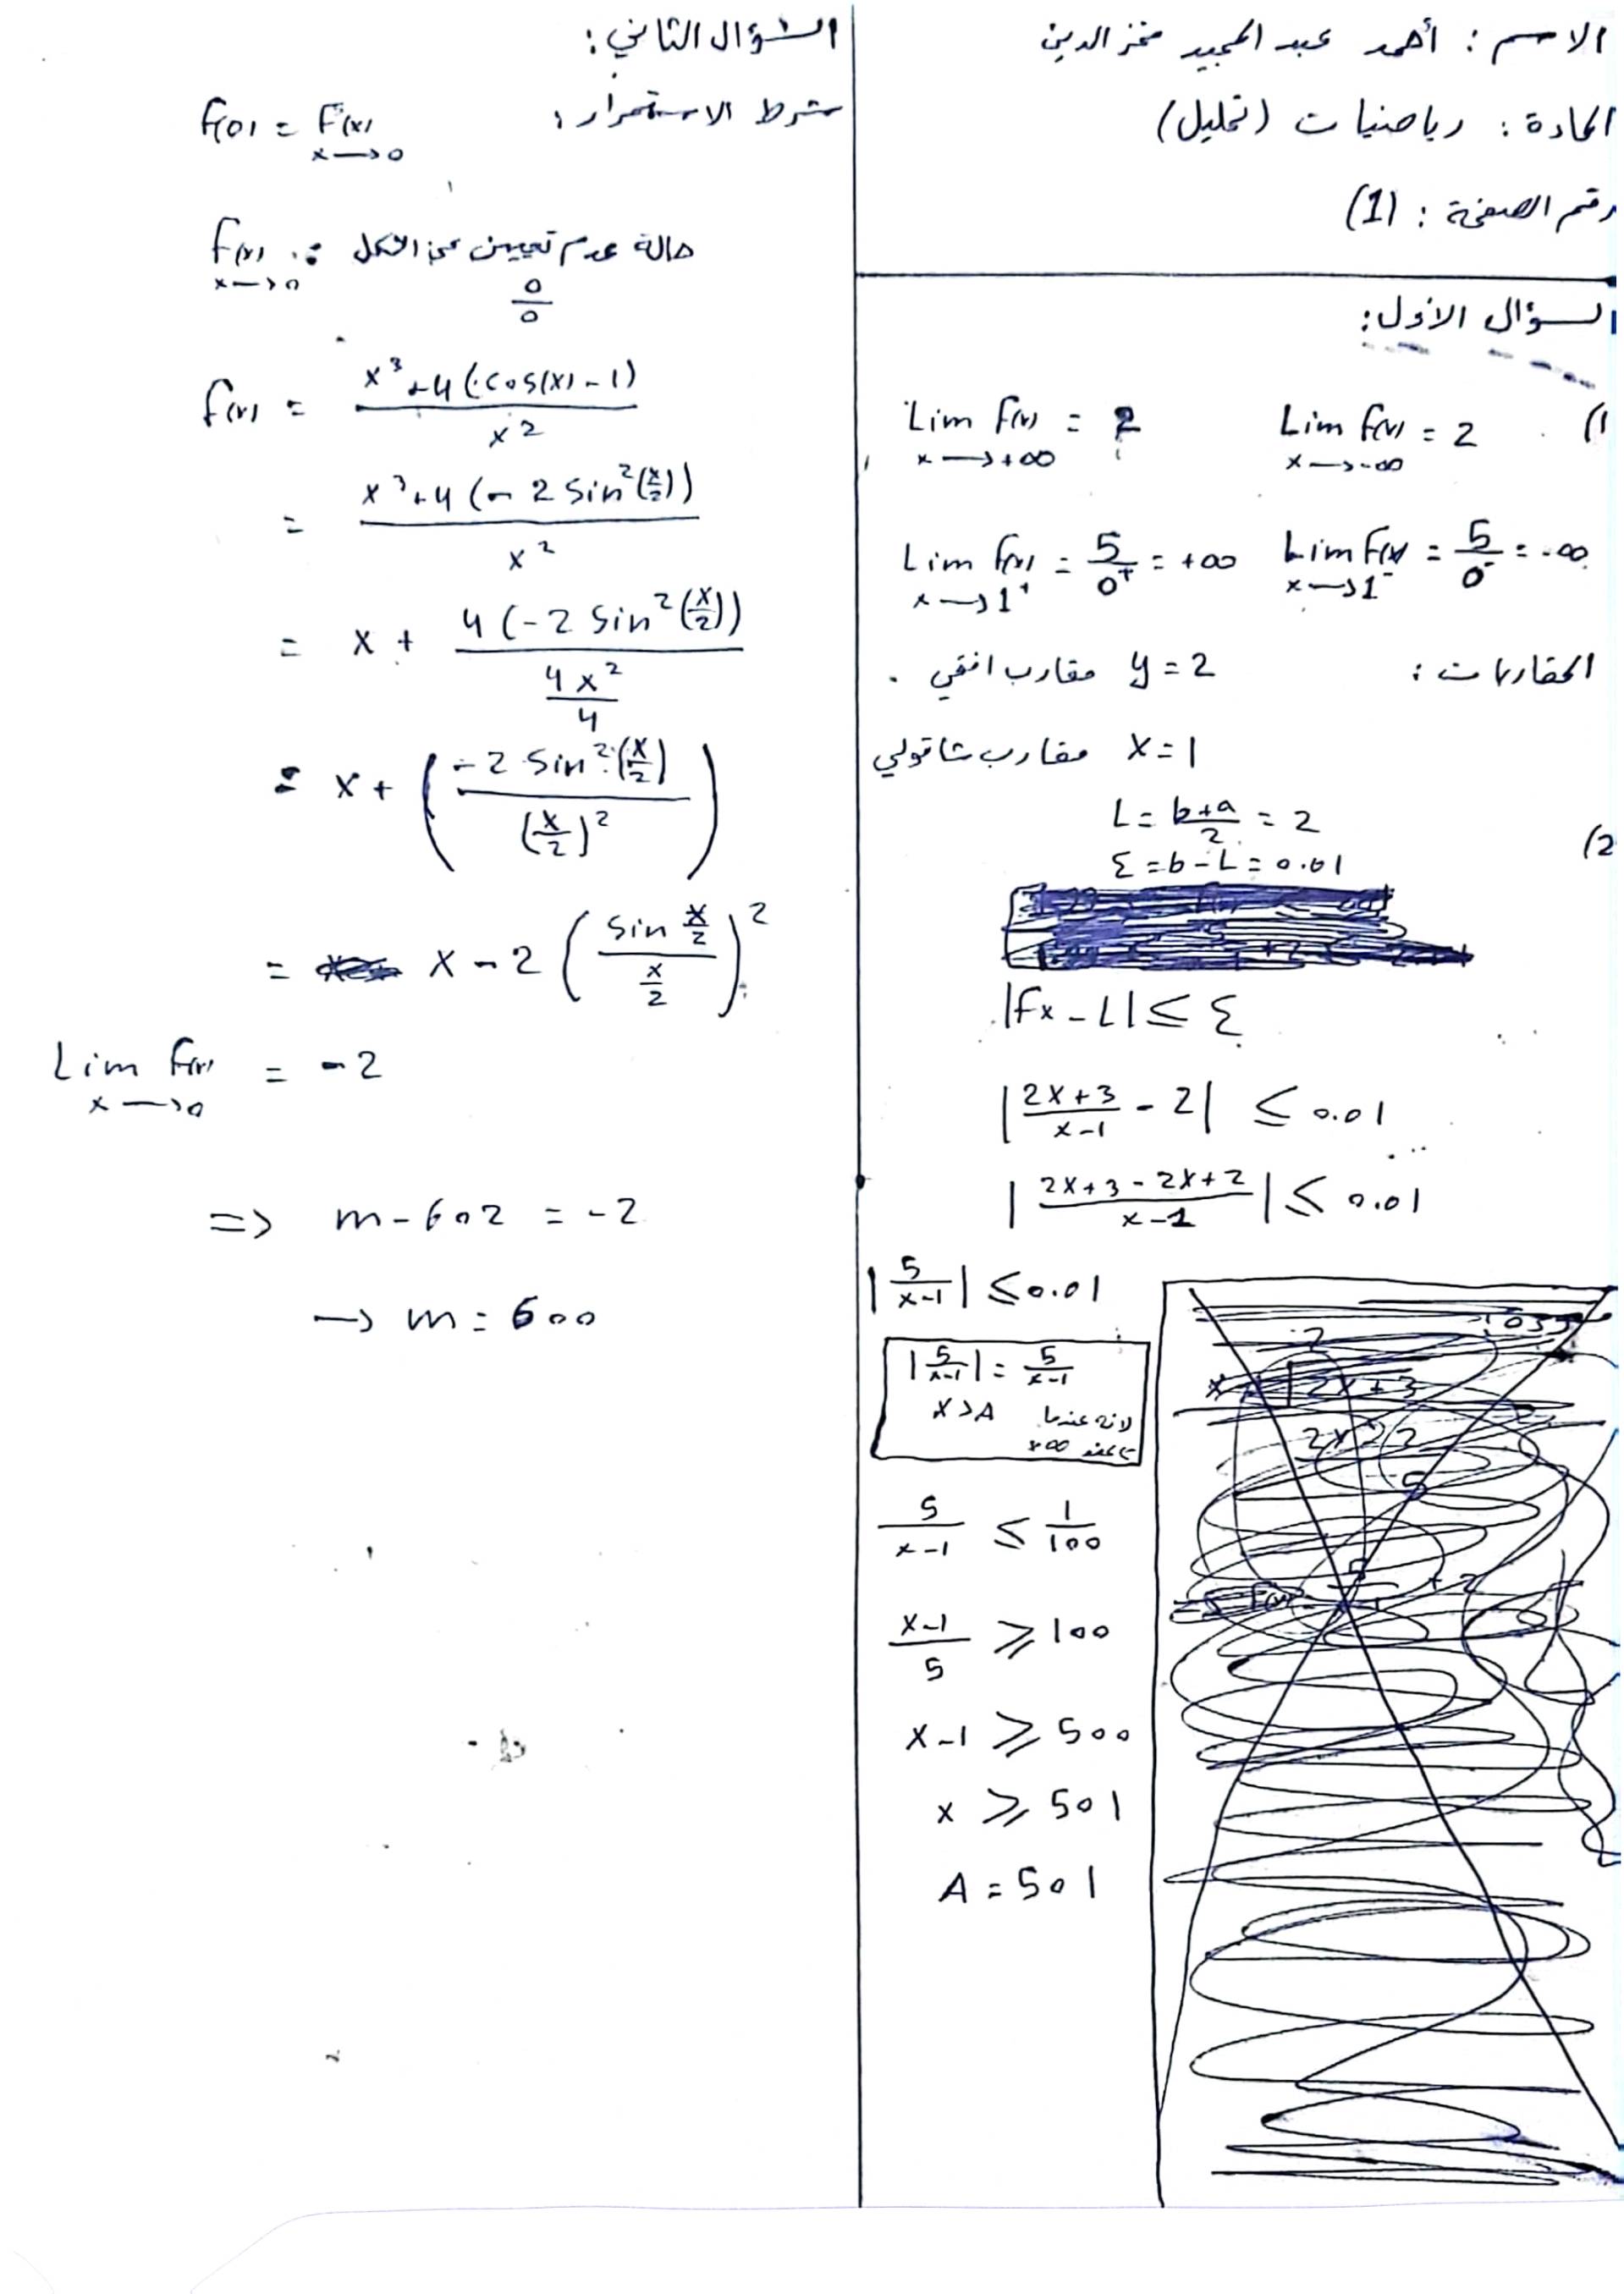 الاسم : أحمد عبد المجيد فخر الدين
المادة : رياضيات (تحليل)
رقم الصفحة : (1)
السؤال الأول:
1) Lim f(x) = 2 Lim f(x) = 2
x → -∞ x → +∞
Lim f(x) = 5/0⁻ = -∞ Lim f(x) = 5/0⁺ = +∞
x → 1⁻ x → 1⁺
المقاربات : y = 2 مقارب افقي .
x = 1 مقارب شاقولي
2) L = (b+a)/2 = 2
Ɛ = b - L = 0.01
|fx - L| ≤ Ɛ
|(2x+3)/(x-1) - 2| ≤ 0.01
|(2x+3-2x+2)/(x-1)| ≤ 0.01
|5/(x-1)| ≤ 0.01
|5/(x-1)| = 5/(x-1)
لانه عندما x > A
+∞
5/(x-1) ≤ 1/100
(x-1)/5 ≥ 100
x-1 ≥ 500
x ≥ 501
A = 501
السؤال الثاني:
شرط الاستمرار : f(0) = F(x)
x → 0
f(x) : حالة عدم تعيين من الشكل
x → 0 0/0
f(x) = (x³+4(cos(x)-1))/x²
= (x³+4(-2 sin²(x/2)))/x²
= x + (4(-2 sin²(x/2)))/(4x²/4)
= x + ((-2 sin²(x/2))/(x/2)²)
= x - 2 ((sin x/2)/(x/2))²
Lim f(x) = -2
x → 0
=> m - 602 = -2
→ m = 600